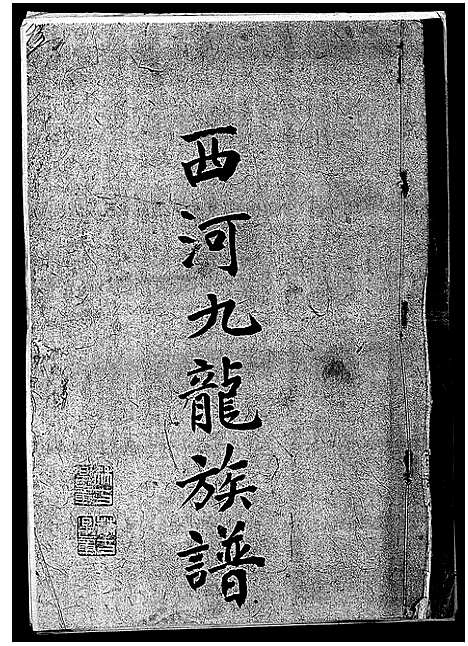 西河九龍族譜